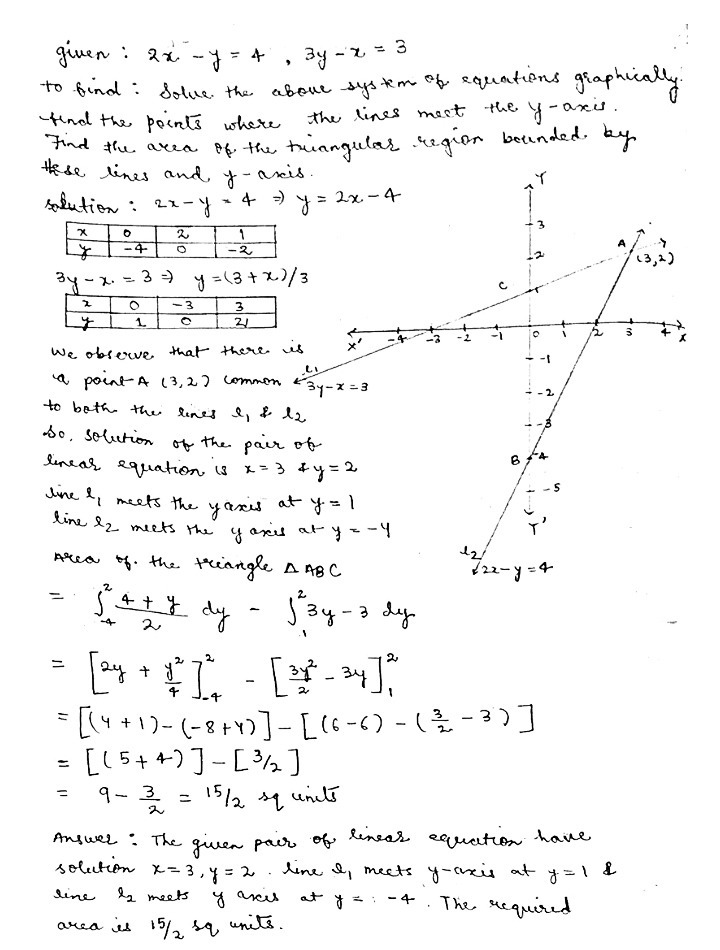 given : 2x - y = 4 , 3y - x = 3
to find : Solve the above system of equations graphically.
find the points where the lines meet the y-axis.
Find the area of the triangular region bounded by
these lines and y-axis.
solution : 2x - y = 4 ⇒ y = 2x - 4
x 0 2 1
y -4 0 -2
3y - x = 3 ⇒ y = (3 + x)/3
x 0 -3 3
y 1 0 2
we observe that there is
a point A (3,2) common
to both the lines l1 & l2
So, solution of the pair of
linear equation is x = 3 & y = 2
line l1 meets the y axis at y = 1
line l2 meets the y axis at y = -4
Y
3
2
A
(3,2)
C
1
X' -4 -3 -2 -1 0 1 2 3 4 X
l1
3y - x = 3
-1
-2
-3
B -4
-5
Y'
l2
2x - y = 4
Area of the triangle △ ABC
= ∫_{-4}^{2} (4 + y)/2 dy - ∫_{1}^{2} 3y - 3 dy
= [2y + y²/4]_{-4}^{2} - [3y²/2 - 3y]_{1}^{2}
= [(4 + 1) - (-8 + 4)] - [(6 - 6) - (3/2 - 3)]
= [(5 + 4)] - [3/2]
= 9 - 3/2 = 15/2 sq units
Answer : The given pair of linear equation have
solution x = 3, y = 2. line l1 meets y-axis at y = 1 &
line l2 meets y axis at y = -4. The required
area is 15/2 sq units.